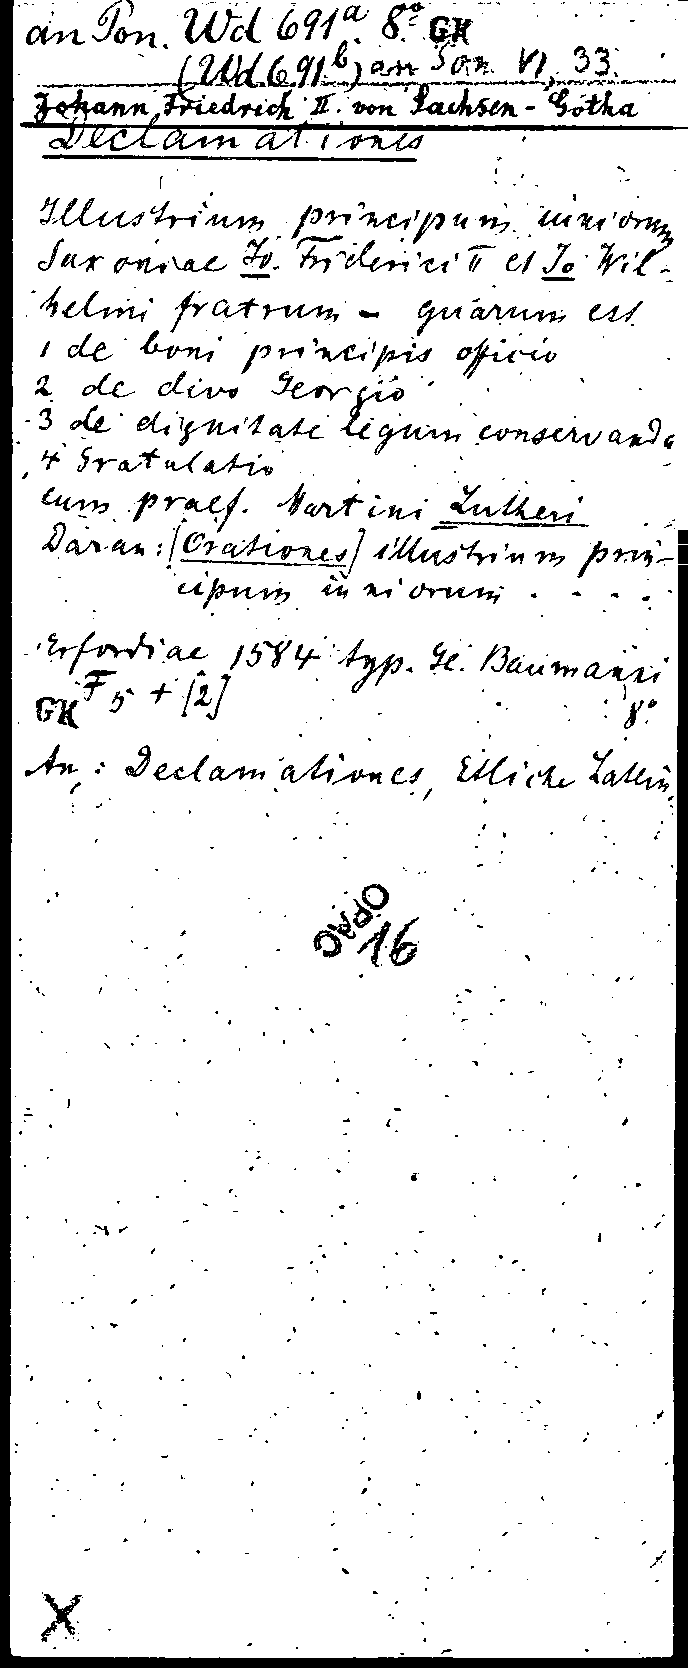 an Pon. Wd 691ᵃ. 8° GK
(Wd 691ᵇ) an Pon VI, 33.
Johann Friedrich II. von Sachsen-Gotha
Declamationes
Illustrium principum iuniorum
Saxoniae Jo. Friderici II et Jo Wil-
helmi fratrum – quarum est
1 de boni principis officio
2 de divo Georgio
3 de dignitate legum conservanda
4 Gratulatio
cum praef. Martini Lutheri
Daran: [Orationes] illustrium prin-
cipum iuniorum . - . .
Erfordiae 1584 typ. Ge. Baumanni
GK F 5 + [2] 8°
An: Declamationes, Etliche Latein.
OPAC
16
X